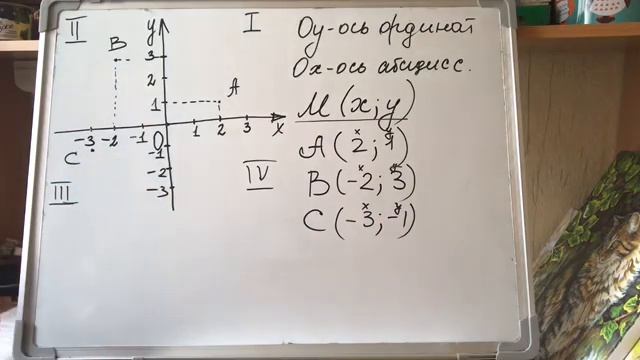 II
I
Oy-ось ординат
y
B
3
Ox-ось абсцисс.
2
A
M (x; y)
1
-3 -2 -1 0 1 2 3 x
A (2; 1)
x y
C
-1
-2
B (-2; 3)
x y
III
IV
-3
C (-3; -1)
x y